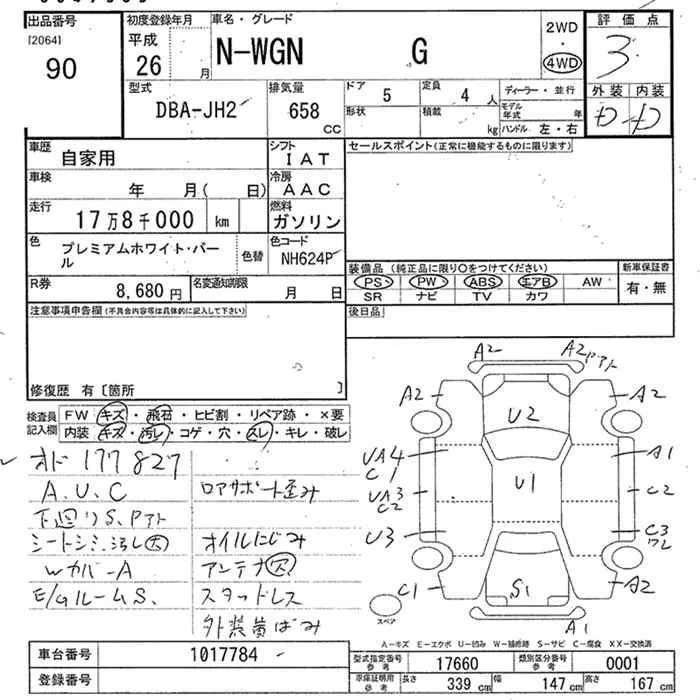 出品番号
[2064]
90
初度登録年月
平成
26 月
車名・グレード
N-WGN G
2WD
・
4WD
評価点
3
外装 内装
D-D
型式
DBA-JH2
排気量
658
CC
ドア 5
定員 4 人
形状
積載 kg
ディーラー・並行
モデル年式 年
ハンドル 左・右
車歴
自家用
シフト
IAT
車検
年 月( 日)
冷房
AAC
走行
17万8千000 km
燃料
ガソリン
色
プレミアムホワイト・パール
色替
色コード
NH624P
R券
8,680 円
名変通知期限
月 日
セールスポイント(正常に機能するものに限ります)
装備品(純正品に限り○をつけてください)
新車保証書
PS PW ABS エアB AW
SR ナビ TV カワ
有・無
後日品
注意事項申告欄(不具合内容等は具体的に記入して下さい)
修復歴 有〔箇所 〕
検査員記入欄
FW キズ・飛石・ヒビ割・リペア跡・×要
内装 キズ・汚レ・コゲ・穴・スレ・キレ・破レ
オド 177827
A.U.C
下廻りS.Pアト
シートシミ、汚レ大
WカバーA
E/GルームS.
ロアサポート歪み
オイルにじみ
アンテナ欠
スタッドレス
外装黄ばみ
A2
A2 Pアト
A2
A2
U2
UA4
C1
A1
U1
UA3
C2
C2
U3
C3
ワレ
C1
S1
A2
スペア
A1
A-キズ E-エクボ U-凹み W-補修跡 S-サビ C-腐食 XX-交換済
車台番号
1017784
登録番号
型式指定番号
参考
17660
類別区分番号
参考
0001
車庫証明用
参考
長さ 339 cm
幅 147 cm
高さ 167 cm